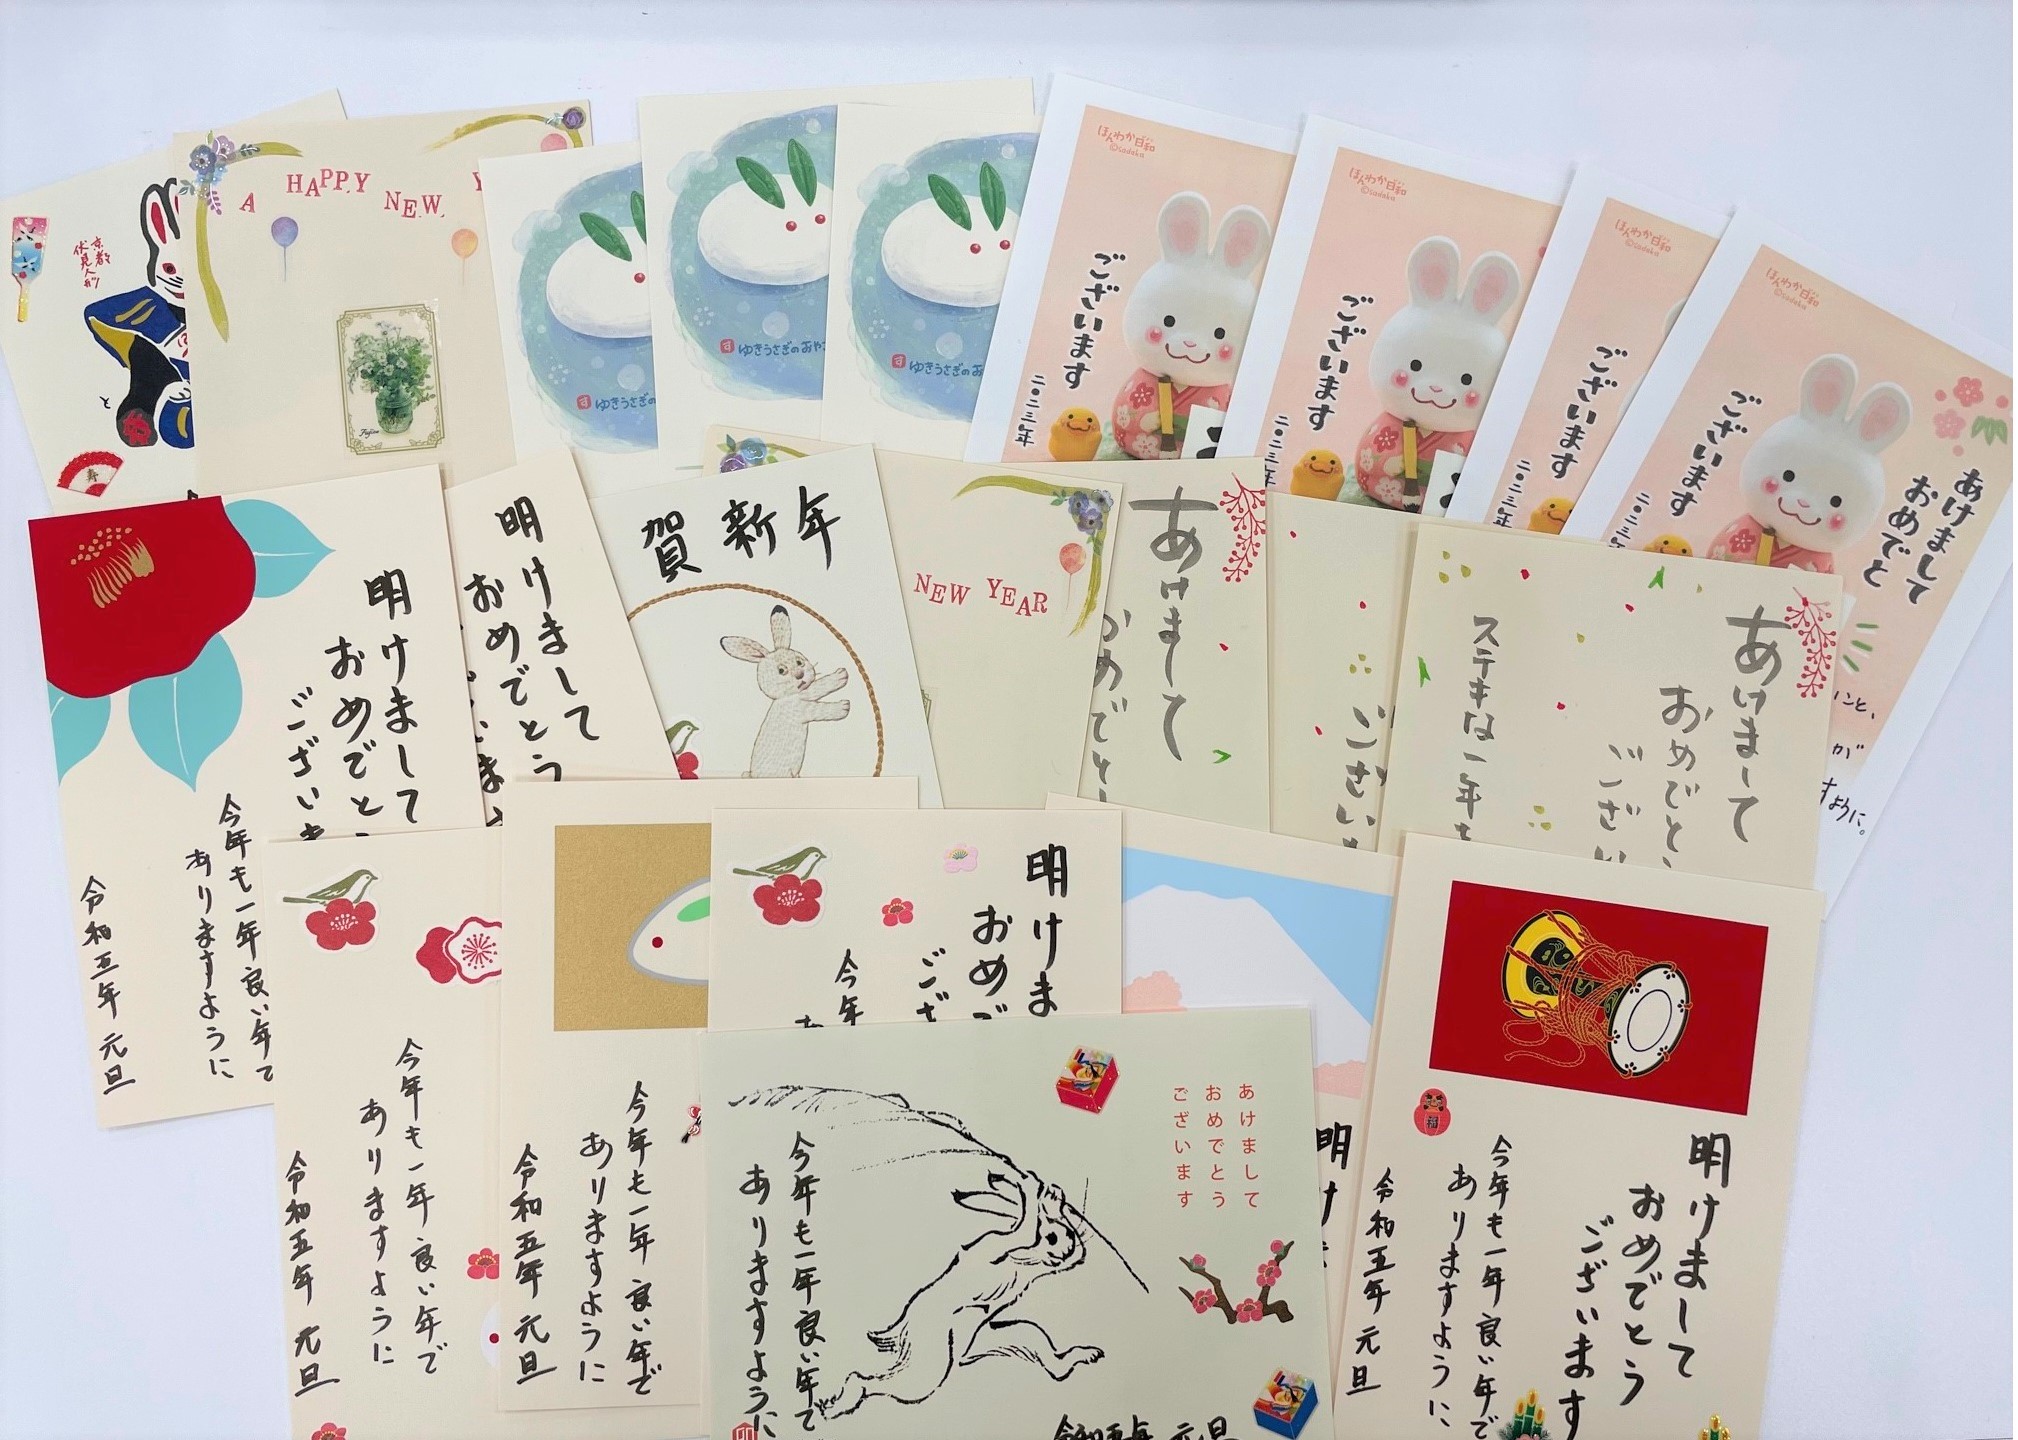 京都
伏見人形
と
寿
A HAPPY NEW Y
Fujico
ゆきうさぎの
ゆきうさぎのおや
ゆきうさぎのお
ほんわか日和
©sadaka
ございます
二〇二三年
ほんわか日和
©sadaka
ございます
二〇二三年
ほんわか日和
©sadaka
ございます
二〇二三年
ほんわか日和
©sadaka
あけまして
おめでと
ございます
二〇二三年
いこと、
が
すように。
明けまして
おめでと
ございま
今年も一年良い年で
ありますように
令和五年 元旦
明けまして
おめでとう
賀新年
NEW YEAR
あけまして
おめでと
ござい
あけまして
おめでと
ござい
ステキな一年も
今年も一年良い年で
ありますように
令和五年 元旦
今年も一年良い年で
ありますように
令和五年 元旦
明けま
おめで
ござ
今年
あ
あけまして
おめでとう
ございます
今年も一年良い年で
ありますように
令和五年 元旦
卯
明
け
福
明けまして
おめでとう
ございます
今年も一年良い年で
ありますように
令和五年 元旦